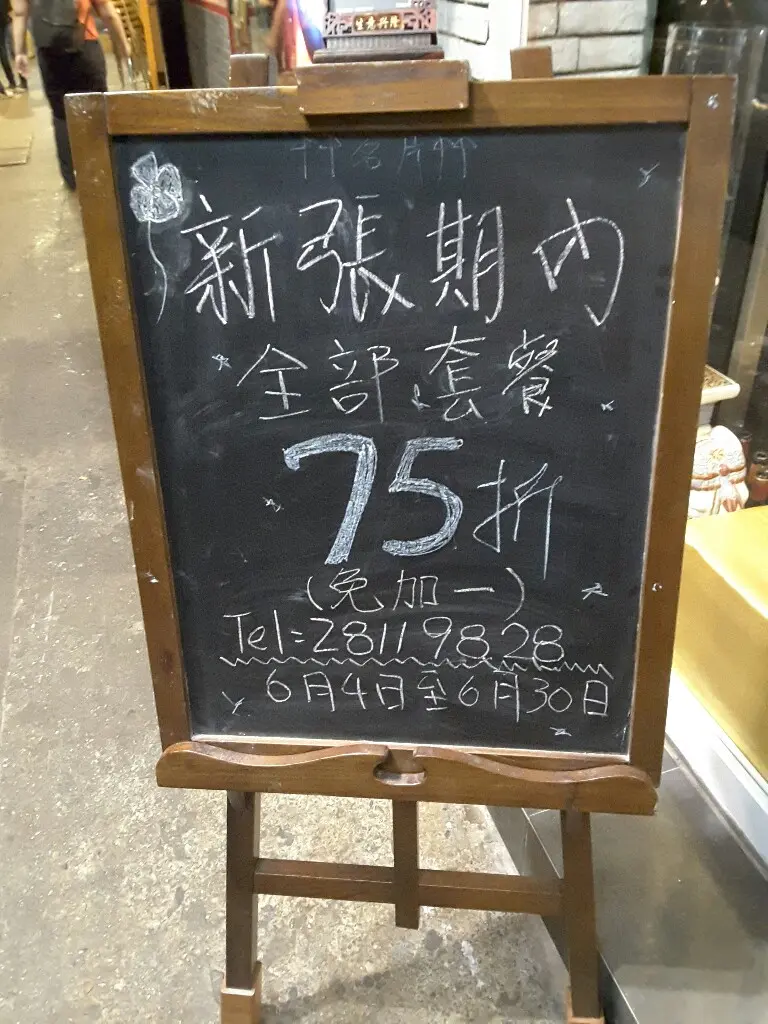 生意興隆
新張期内
全部套餐
75折
(免加一)
Tel:28119828
6月4日至6月30日